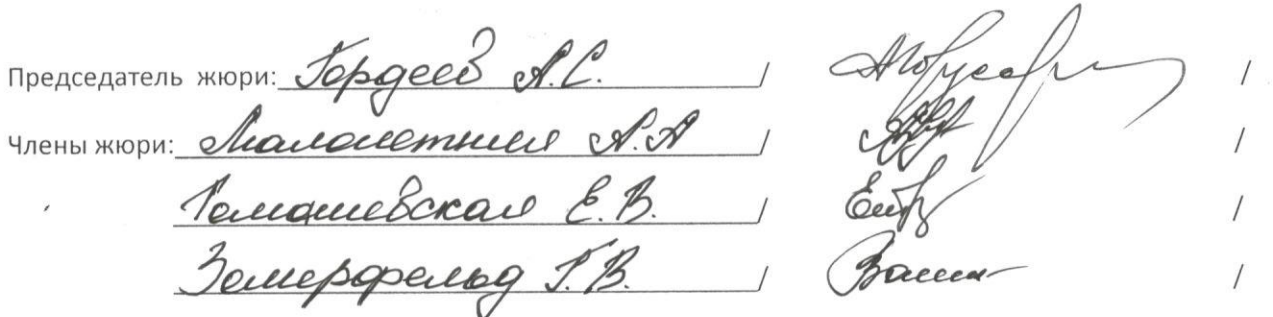 Председатель жюри: Гордеев А.С. / /
Члены жюри: Малолетния А.А / /
Томашевская Е.В. / /
Зомерфельд Г.В. / /